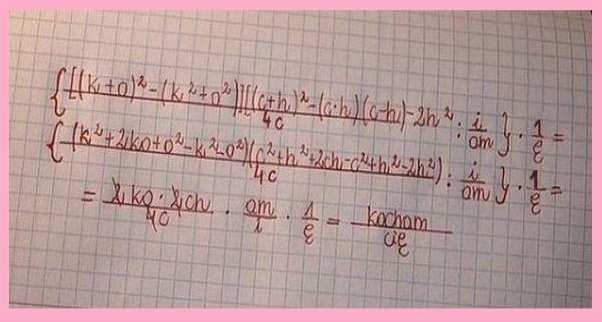 {[(k+o)²-(k²+o²)][(c+h)²-(c·h)(c-h)-2h²/4c : i/am} · 1/ę =
{(k²+2ko+o²-k²-o²)(c²+h²+2ch-c²+h²-2h²)/4c : i/am} · 1/ę =
= 2ko·2ch/4c · am/i · 1/ę = kocham/cię